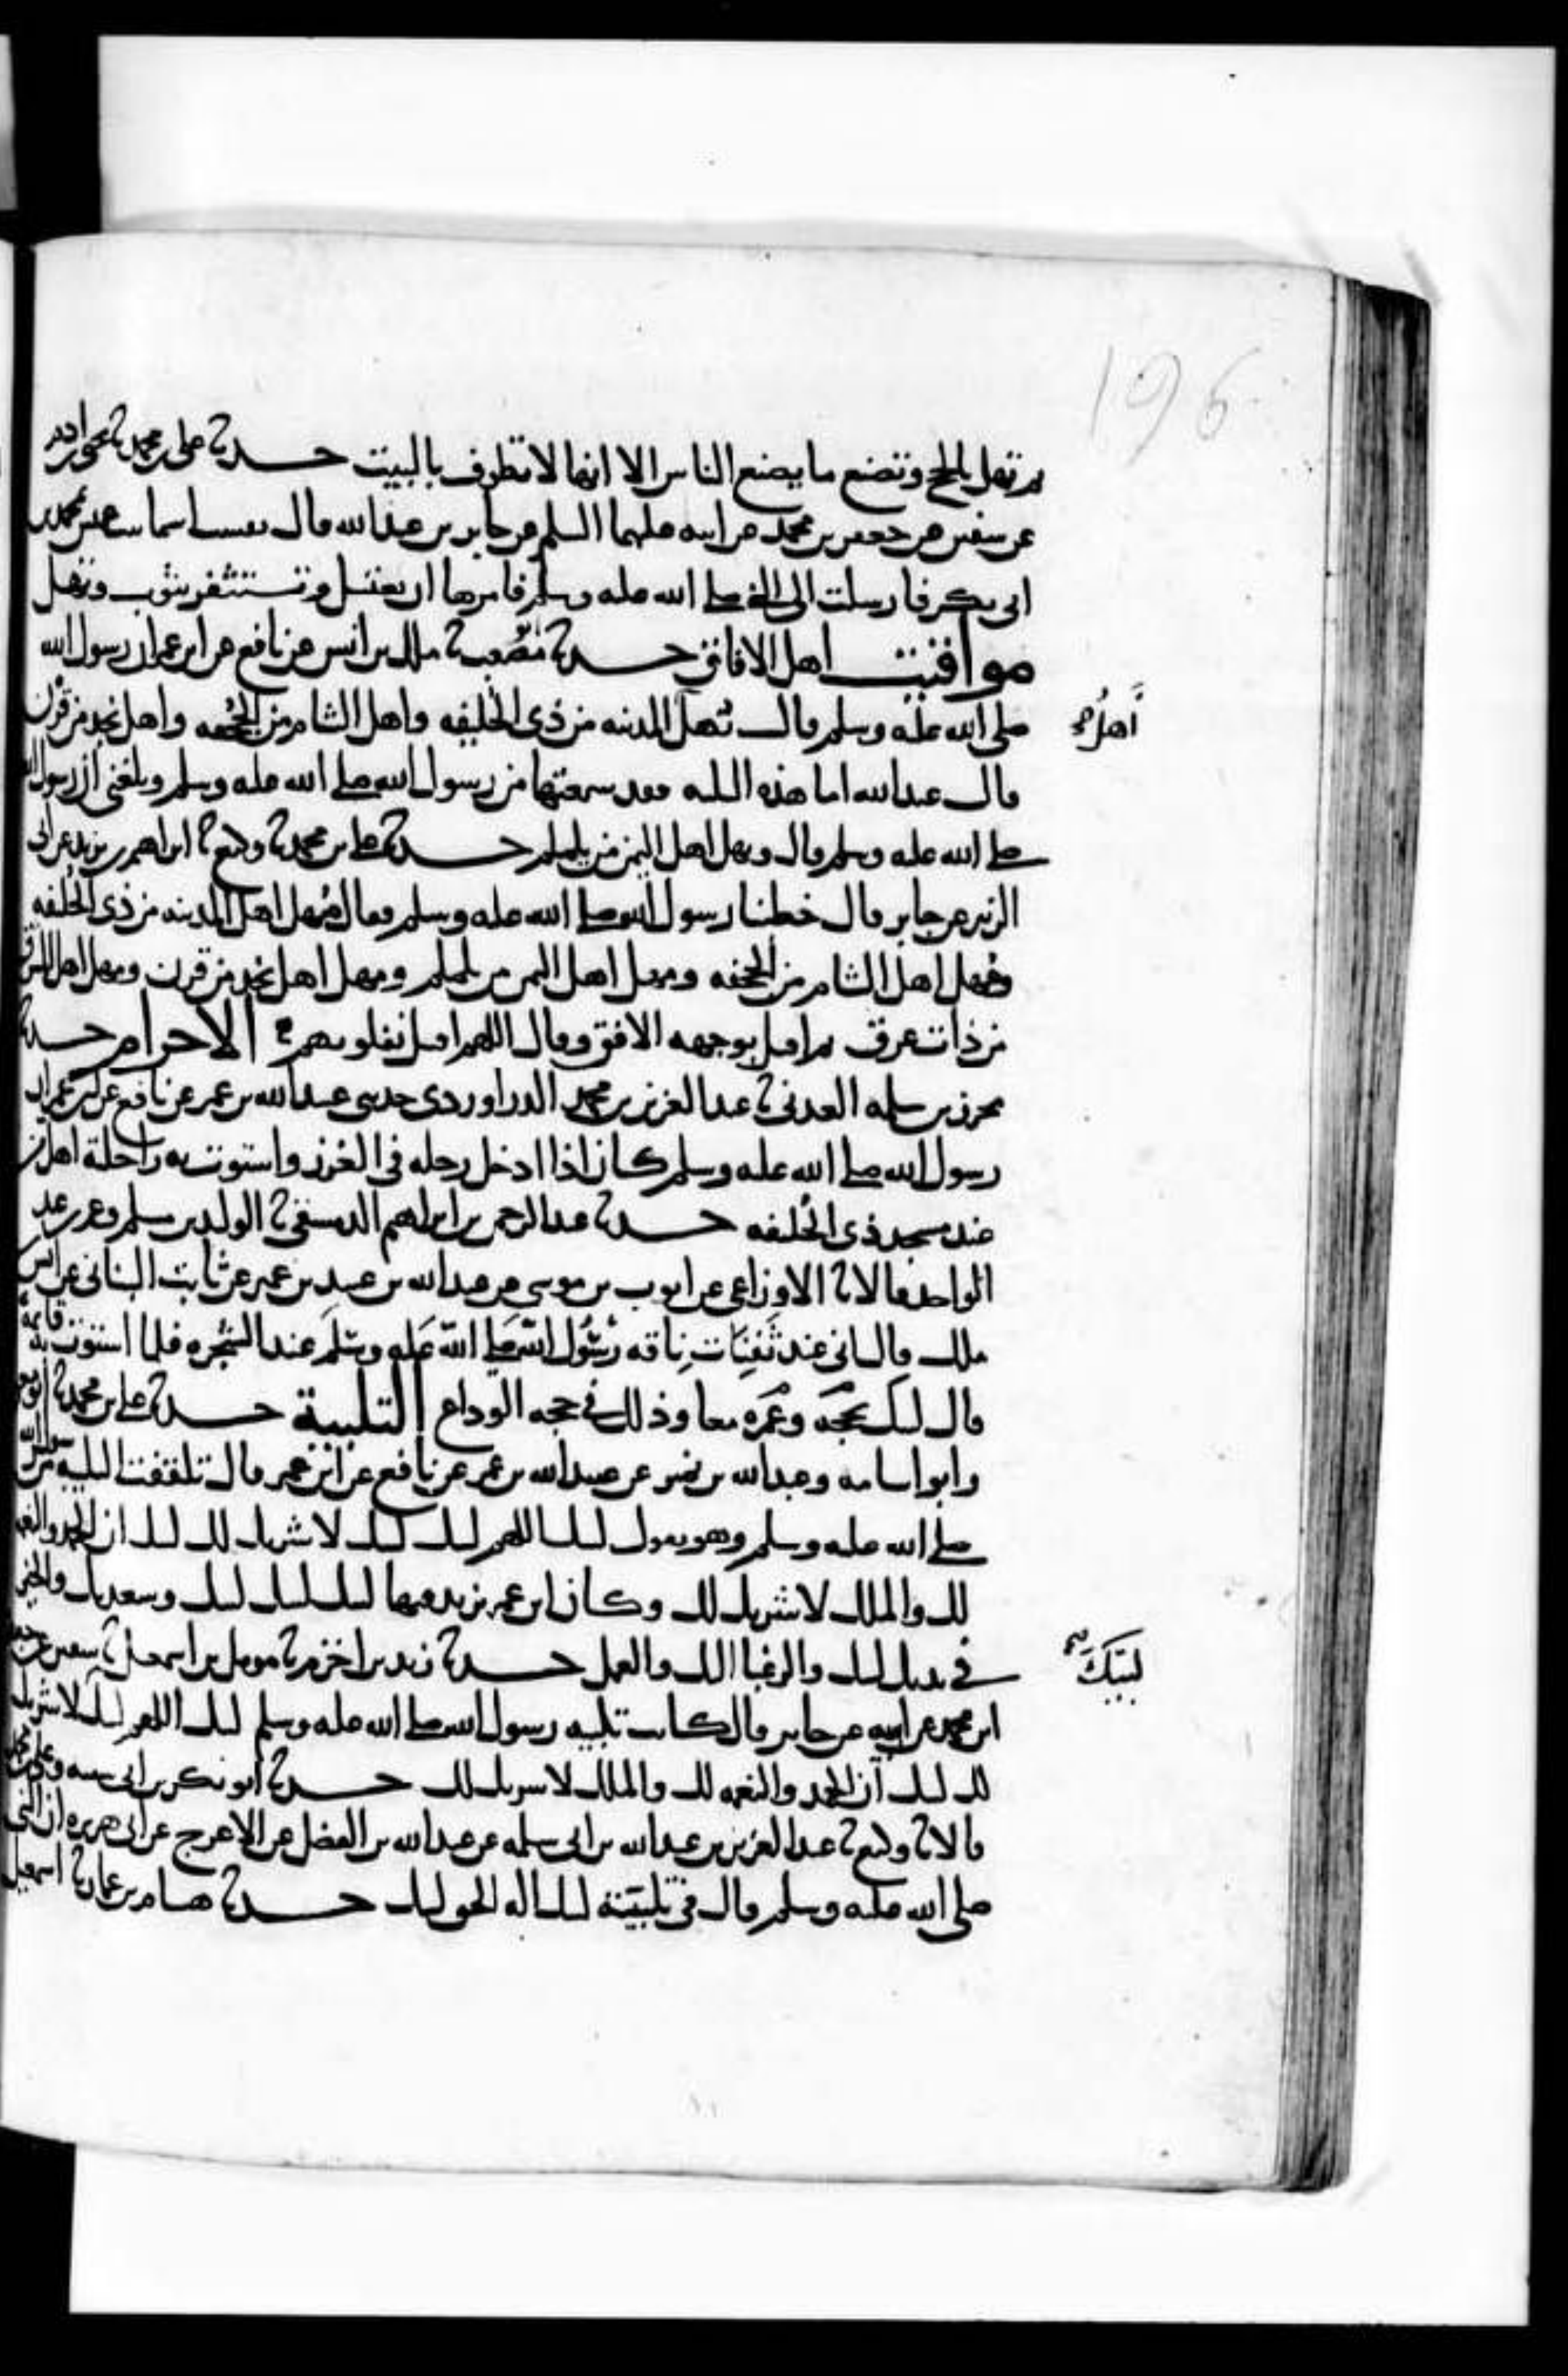 196
ثم تهل بالحج وتصنع ما يصنع الناس الا انها لا تطوف بالبيت حدثنا على بن محمد ثنا يحيى بن ادم
عن سفين عن جعفر بن محمد عن ابيه عليهما السلم عن جابر بن عبد الله قال نفست اسما بنت عميس بمحمد بن
ابى بكر فارسلت الى النبي صلى الله عليه وسلم فامرها ان تغتسل وتستثفر بثوب وتهل
مواقيت اهل الافاق حدثنا ابو مصعب ثنا ملك بن انس عن نافع عن ابن عمر ان رسول الله
صلى الله عليه وسلم قال يُهل المدينه من ذى الحليفه واهل الشام من الجُحفه واهل نجد من قرْن
أهلُ صح
قال عبد الله اما هذه الثلثه فقد سمعتها من رسول الله صلى الله عليه وسلم وبلغنى ان رسول الله
صلى الله عليه وسلم قال ويهل اهل اليمن من يلملم حدثنا على بن محمد ثنا وكيع ثنا ابراهيم بن يزيد عن ابى
الزبير عن جابر قال خطبنا رسول الله صلى الله عليه وسلم فقال مُهل اهل المدينه من ذى الحُليفه
ومُهل اهل الشام من الجحفه ومهل اهل اليمن من يلملم ومهل اهل نجد من قرن ومهل اهل المشرق
من ذات عرق ثم اقبل بوجهه الافق وقال اللهم اقبل بقلوبهم الاحرام حدثنا
محرز بن سلمه العدنى ثنا عبد العزيز بن محمد الدراوردى حدثنى عبيد الله بن عمر عن نافع عن ابن عمر ان
رسول الله صلى الله عليه وسلم كان اذا ادخل رجله فى الغرز واستوت به راحلة اهل من
عند مسجد ذى الحُليفه حدثنا عبد الرحمن بن ابراهيم الدمشقى ثنا الوليد بن مسلم وعمر بن عبد
الواحد قالا ثنا الاوزاعى عن ايوب بن موسى عن عبد الله بن عبيد بن عمير عن ثابت البنانى عن انس بن
ملك قال انى عند ثَفِنَات ناقه رسُول الله صلى الله عَليه وسَلمَ عند الشجره فلما استوت به قائمة
قال لبيك بحجَّه وعُمره معا وذلك فى حجه الوداع التلبية حدثنا على بن محمد ثنا ابو معويه
وابو اسامه وعبد الله بن نمير عن عبيد الله بن عمر عن نافع عن ابن عمر قال تلقفت التلبية من رسول الله
صلى الله عليه وسلم وهو يقول لبيك اللهم لبيك لبيك لا شريك لك لبيك ان الحمد والنعمه
لك والملك لا شريك لك وكان ابن عمر يزيد فيها لبيك لبيك لبيك وسعديك والخير
فى يديك لبيك والرغبا اليك والعمل حدثنا زيد بن اخزم ثنا مومل بن اسمعيل ثنا سفين عن جعفر
لبيّكَ صح
ابن محمد عن ابيه عن جابر قال كانت تلبيه رسول الله صلى الله عليه وسلم لبيك اللهم لبيك لا شريك
لك لبيك ان الحمد والنعمه لك والملك لا شريك لك حدثنا ابو بكر بن ابى شيبه وعلى بن محمد
قالا ثنا وكيع ثنا عبد العزيز بن عبد الله بن ابى سلمه عن عبد الله بن الفضل عن الاعرج عن ابى هريره ان النبى
صلى الله عليه وسلم قال فى تلبيته لبيك اله الحق لبيك حدثنا هشام بن عمار ثنا اسمعيل